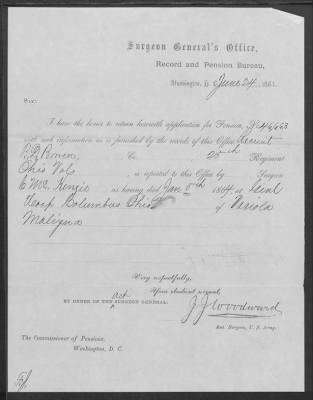 Surgeon General's Office,
Record and Pension Bureau,
Washington, D. June 24, 1881.
SIR:
I have the honor to return herewith application for Pension, No 46,663
with such information as is furnished by the records of this Office. Recruit
Brown, Co. 25th Regiment
Ohio Vols is reported to this Office by Surgeon
Kenzie as having died Jan 8th 1864 at Tent
Hosp Columbus Ohio of Variola
Maligna
Very respectfully,
Your obedient servant,
BY ORDER OF THE Act SURGEON GENERAL:
J J Woodward
Surgeon, U. S. Army.
The Commissioner of Pensions,
Washington, D. C.